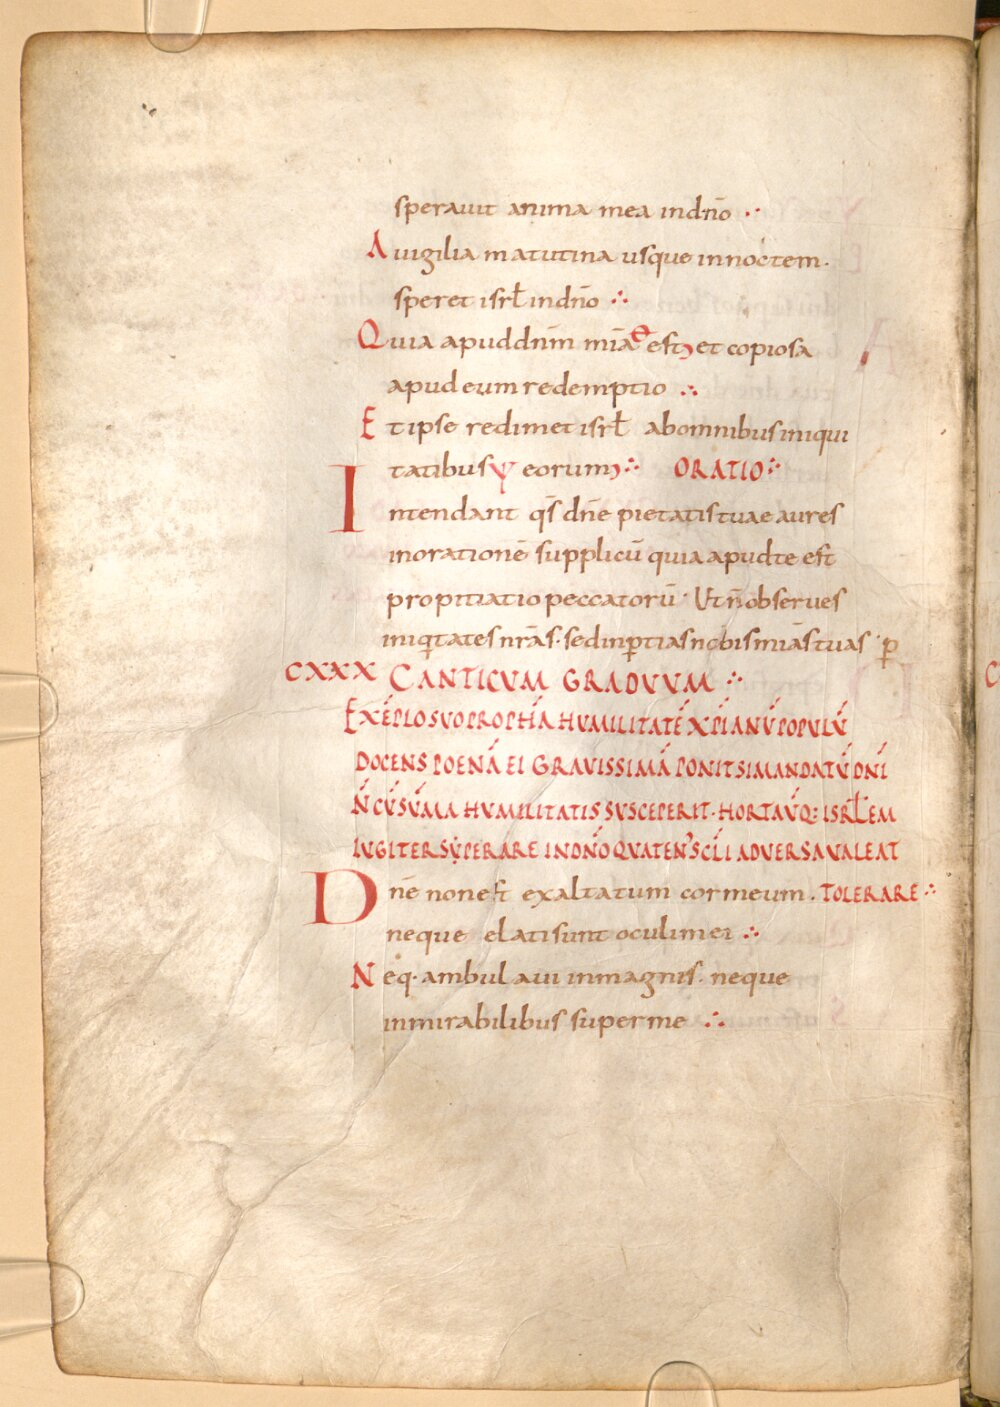 sperauit anima mea indnō ∴
A uigilia matutina usque innoctem.
speret isrł indnō ∴
Quia apuddnm̄ mīa est et copiosa
apud eum redemptio ∴
Et ipse redimet isrł ab omnibus iniqui
tatibus eorum ∴ ORATIO ∴
Intendant qs̄ dnē pietatis tuae aures
inorationē supplicū quia apud te est
propitiatio peccatorū· Ut n̄ obserues
iniqtates nrās· sed inptias nobis miās tuas p
CXXX CANTICUM GRADUUM ∴
EXĒPLO SUO PROPHĀ HUMILITATĒ XPIANŪ POPULŪ
DOCENS POENĀ EI GRAVISSIMĀ PONIT SI MANDATŪ DNI
N̄ CŪ SŪMA HUMILITATIS SUSCEPERIT· HORTAŪQ: ISRŁEM
IUGITER SUPERARE IN DNŌ QUATENS SCLI ADVERSA VALEAT
Dnē non est exaltatum cor meum. TOLERARE ∴
neque elati sunt oculi mei ∴
Neq· ambulaui in magnis· neque
in mirabilibus super me ∴